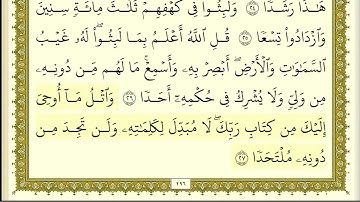 هَٰذَا رَشَدًا ۝٢٤ وَلَبِثُوا۟ فِى كَهْفِهِمْ ثَلَٰثَ مِا۟ئَةٍ سِنِينَ
وَٱزْدَادُوا۟ تِسْعًا ۝٢٥ قُلِ ٱللَّهُ أَعْلَمُ بِمَا لَبِثُوا۟ ۖ لَهُۥ غَيْبُ
ٱلسَّمَٰوَٰتِ وَٱلْأَرْضِ ۖ أَبْصِرْ بِهِۦ وَأَسْمِعْ ۚ مَا لَهُم مِّن دُونِهِۦ
مِن وَلِىٍّ وَلَا يُشْرِكُ فِى حُكْمِهِۦٓ أَحَدًا ۝٢٦ وَٱتْلُ مَآ أُوحِىَ
إِلَيْكَ مِن كِتَابِ رَبِّكَ ۖ لَا مُبَدِّلَ لِكَلِمَٰتِهِۦ وَلَن تَجِدَ مِن
دُونِهِۦ مُلْتَحَدًا ۝٢٧
٢٩٦